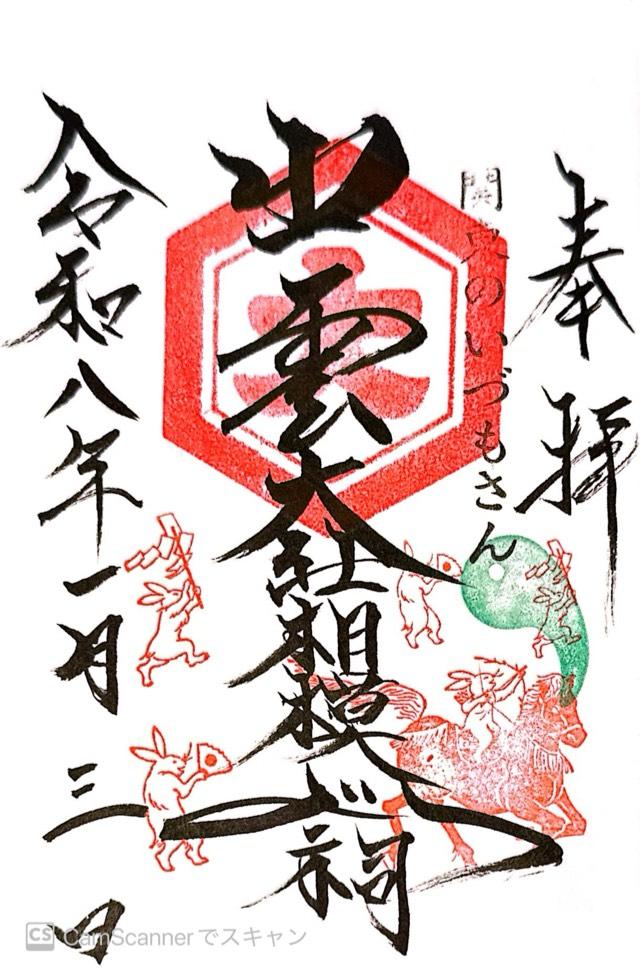 奉拝
関東のいづもさん
出雲大社相模分祠
令和八年一月三日
CS CamScannerでスキャン